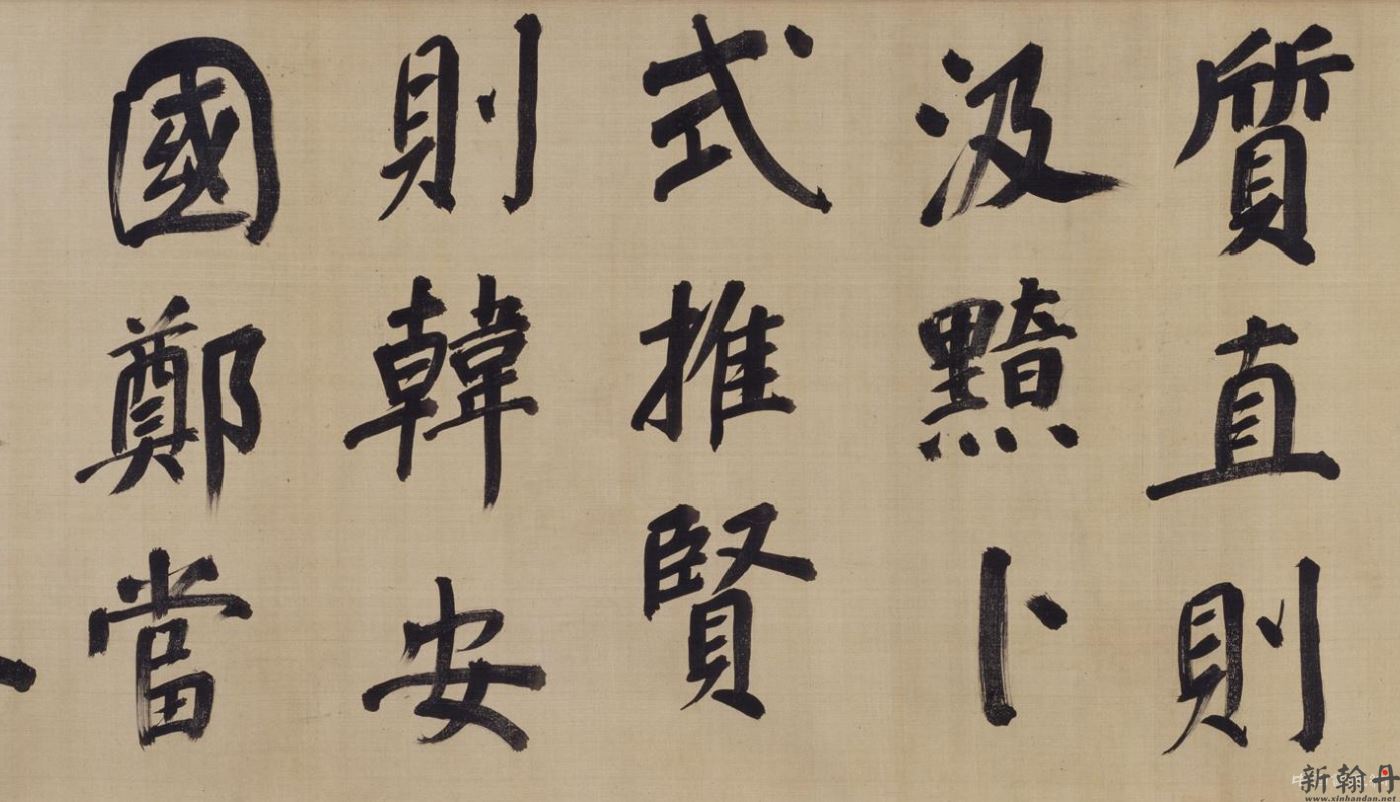 質直則
汲黯卜
式推賢
則韓安
國鄭當
新翰丹
www.xinhandan.net